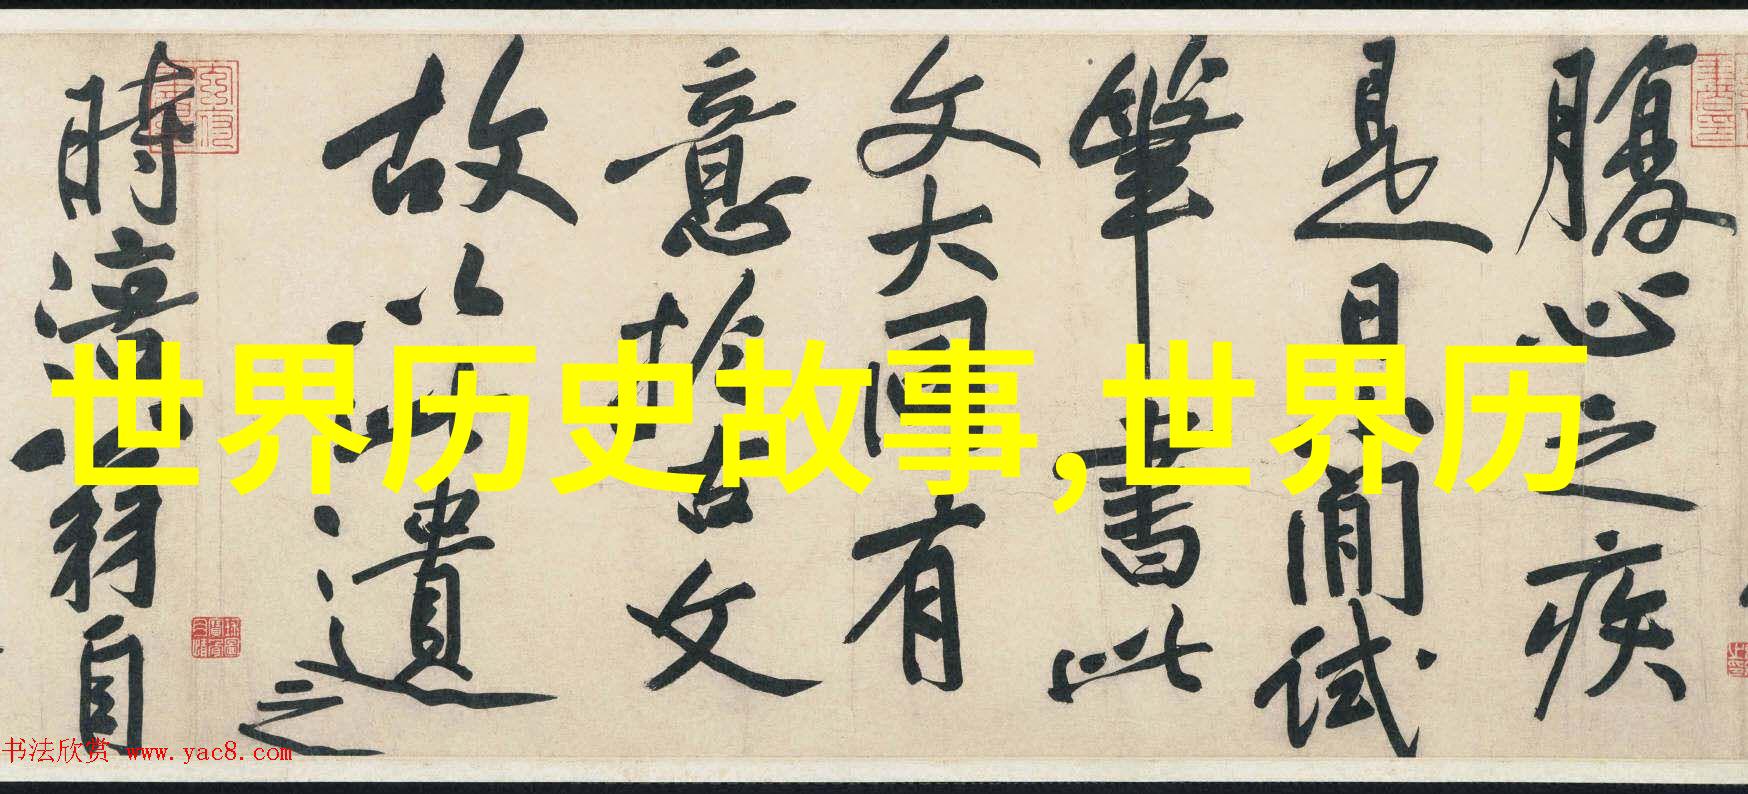 腹心之疾
是日閒試
筆書此
文大同有
意於古文
故以此遺
之
時涪翁自
世界历史故事,世界历
书法欣赏 www.yac8.com